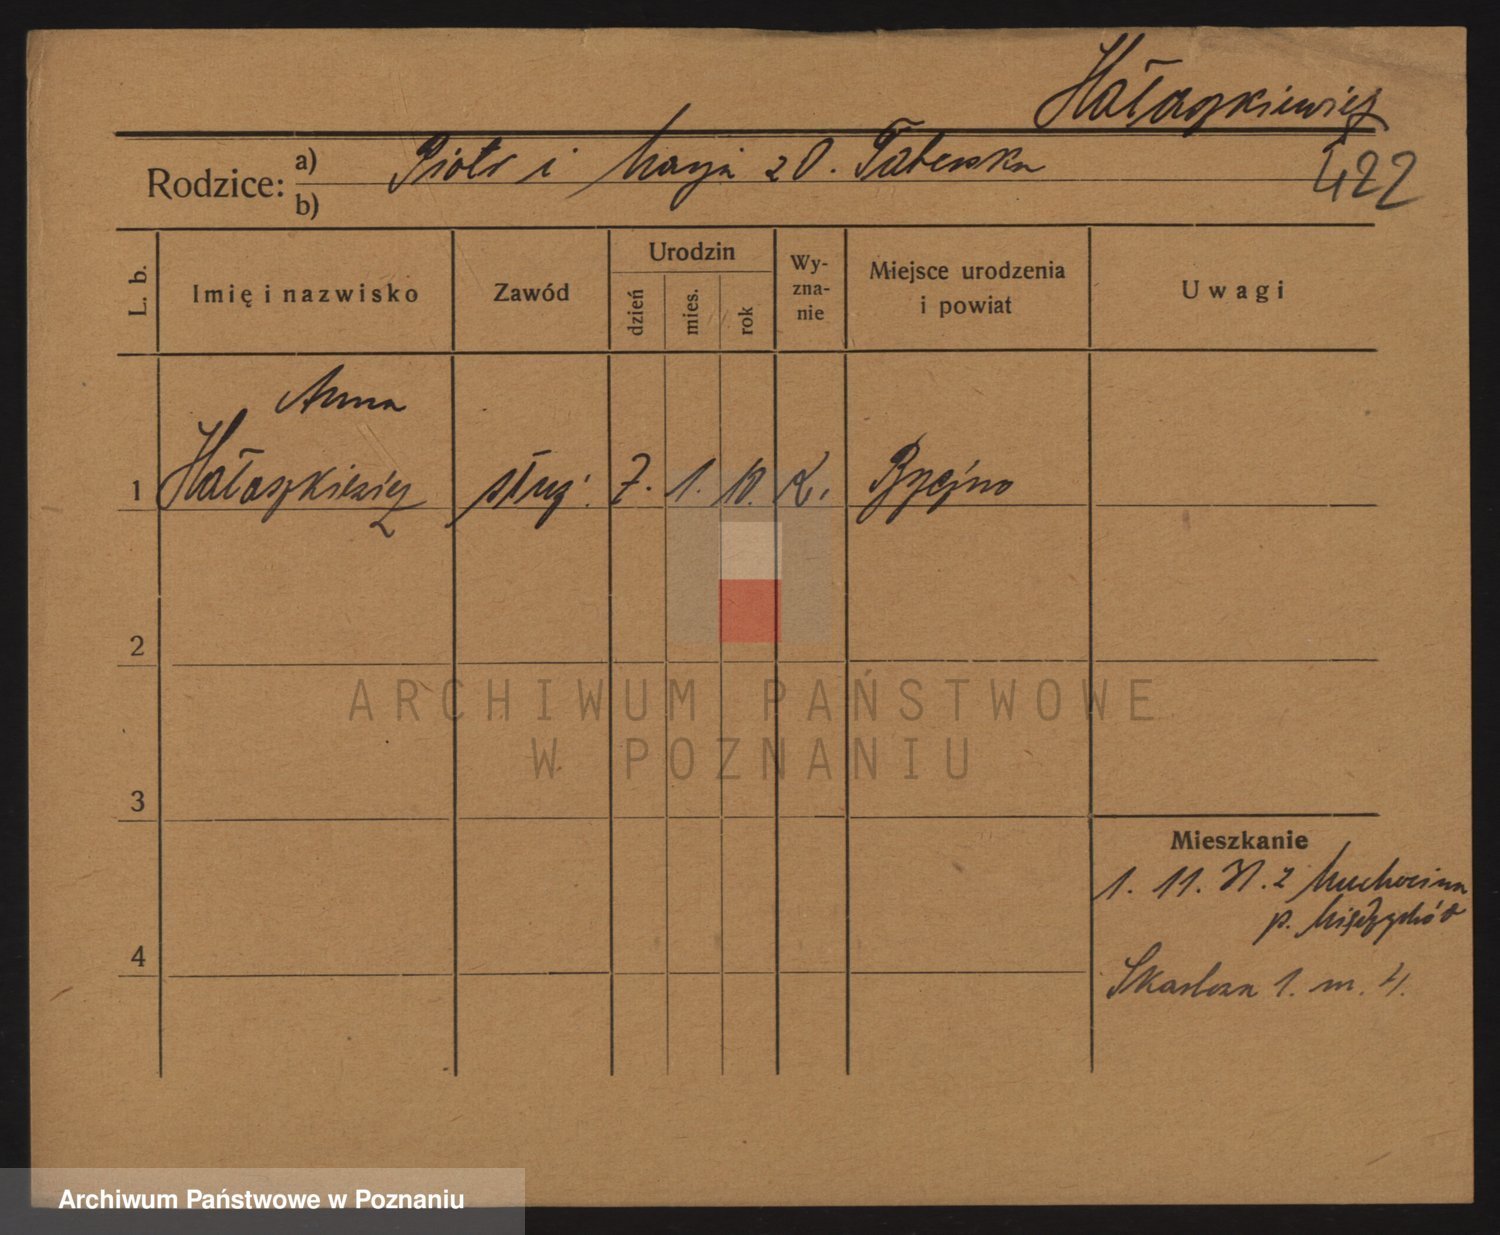 Hałaszkiewicz
Rodzice: a) Piotr i Marja z D. Taberska
b)
422
L. b.
Imię i nazwisko
Zawód
Urodzin
dzień
mies.
rok
Wy-
zna-
nie
Miejsce urodzenia
i powiat
Uwagi
Anna
1 Hałaszkiewicz służ. 7. 1. 10. K.
2
3
4
Mieszkanie
1. 11. z Muchocina
p. Międzychód
Skarbowa 1. m. 4.
ARCHIWUM PAŃSTWOWE
W POZNANIU
Archiwum Państwowe w Poznaniu